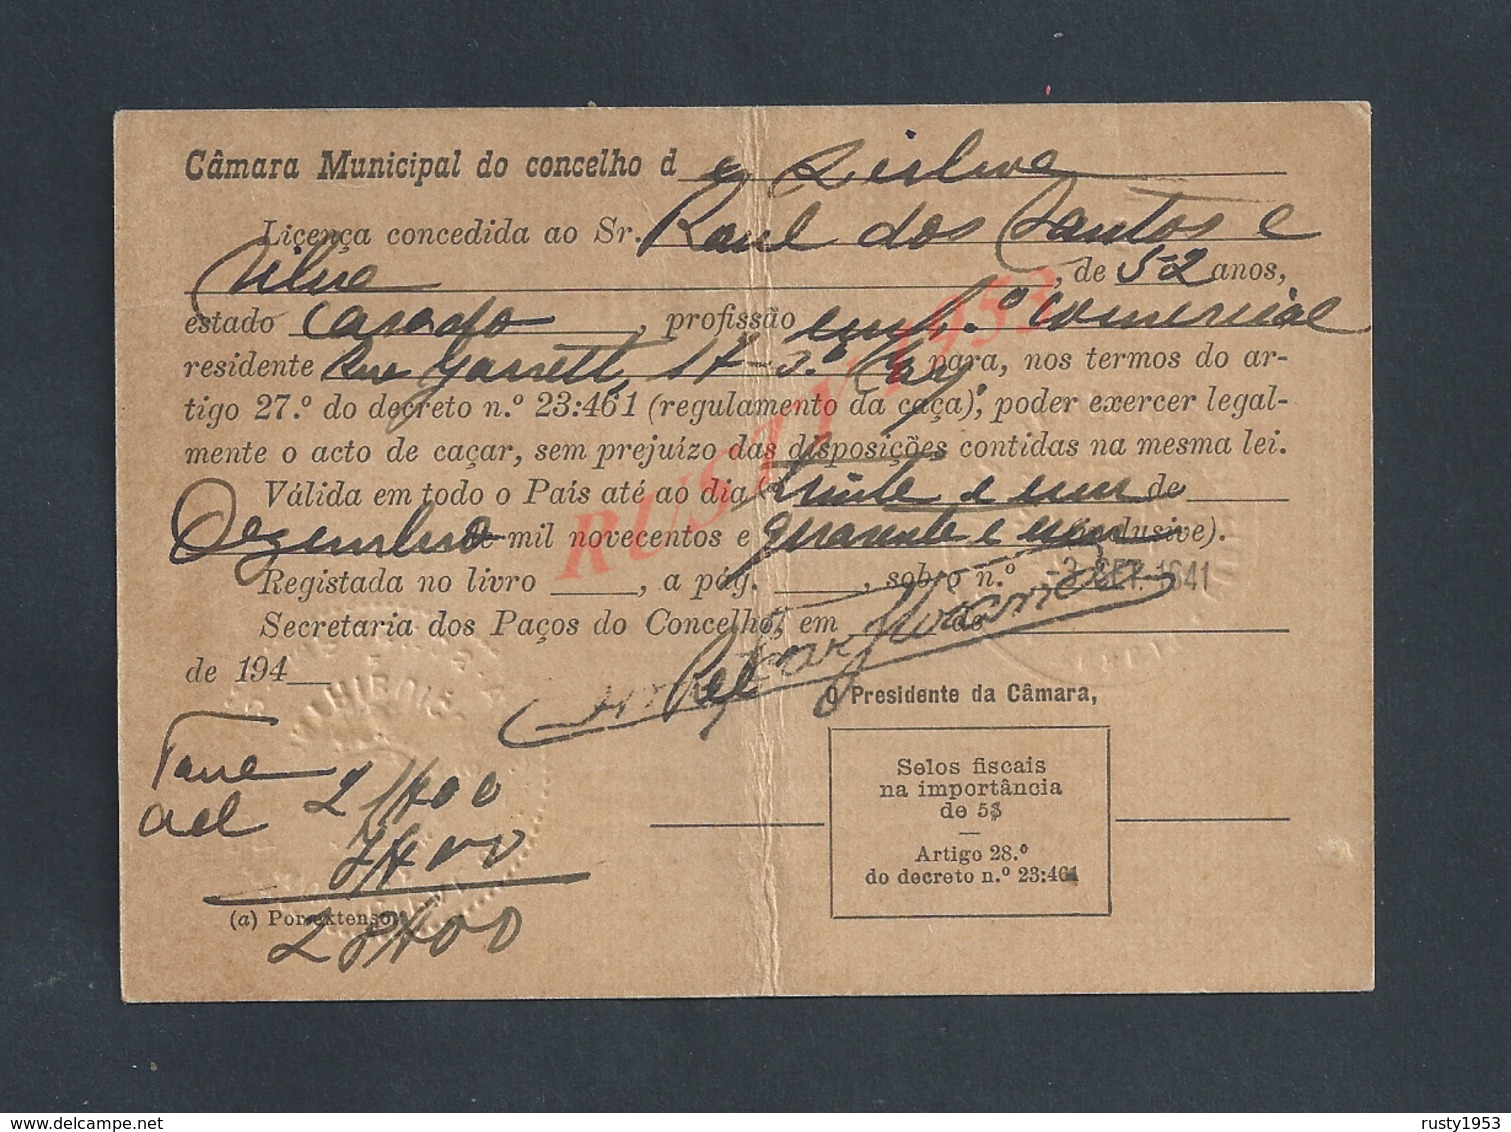 Câmara Municipal do concelho de Lisboa
Licença concedida ao Sr. Raul dos Santos e
Silva, de 52 anos,
estado casado, profissão emp.º comercial
residente Rua Garrett, 17-3.º para, nos termos do ar-
tigo 27.º do decreto n.º 23:461 (regulamento da caça), poder exercer legal-
mente o acto de caçar, sem prejuízo das disposições contidas na mesma lei.
Válida em todo o País até ao dia trinta e um de
Dezembro de mil novecentos e quarenta e um (inclusive).
Registada no livro , a pág. , sobro n.º -3 SET. 1941
Secretaria dos Paços do Concelho, em de
de 194
O Presidente da Câmara,
Taxa 21$00
Ad 7$00
28$00
(a) Por extenso.
Selos fiscais
na importância
de 5$
Artigo 28.º
do decreto n.º 23:461
RUSTY 1953
rusty1953